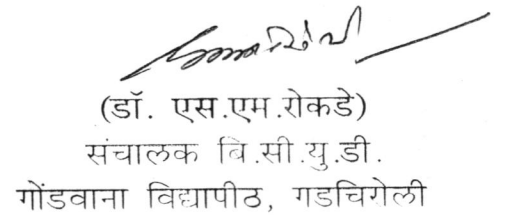 (डॉ. एस.एम.रोकडे)
संचालक बि.सी.यु.डी.
गोंडवाना विद्यापीठ, गडचिरोली